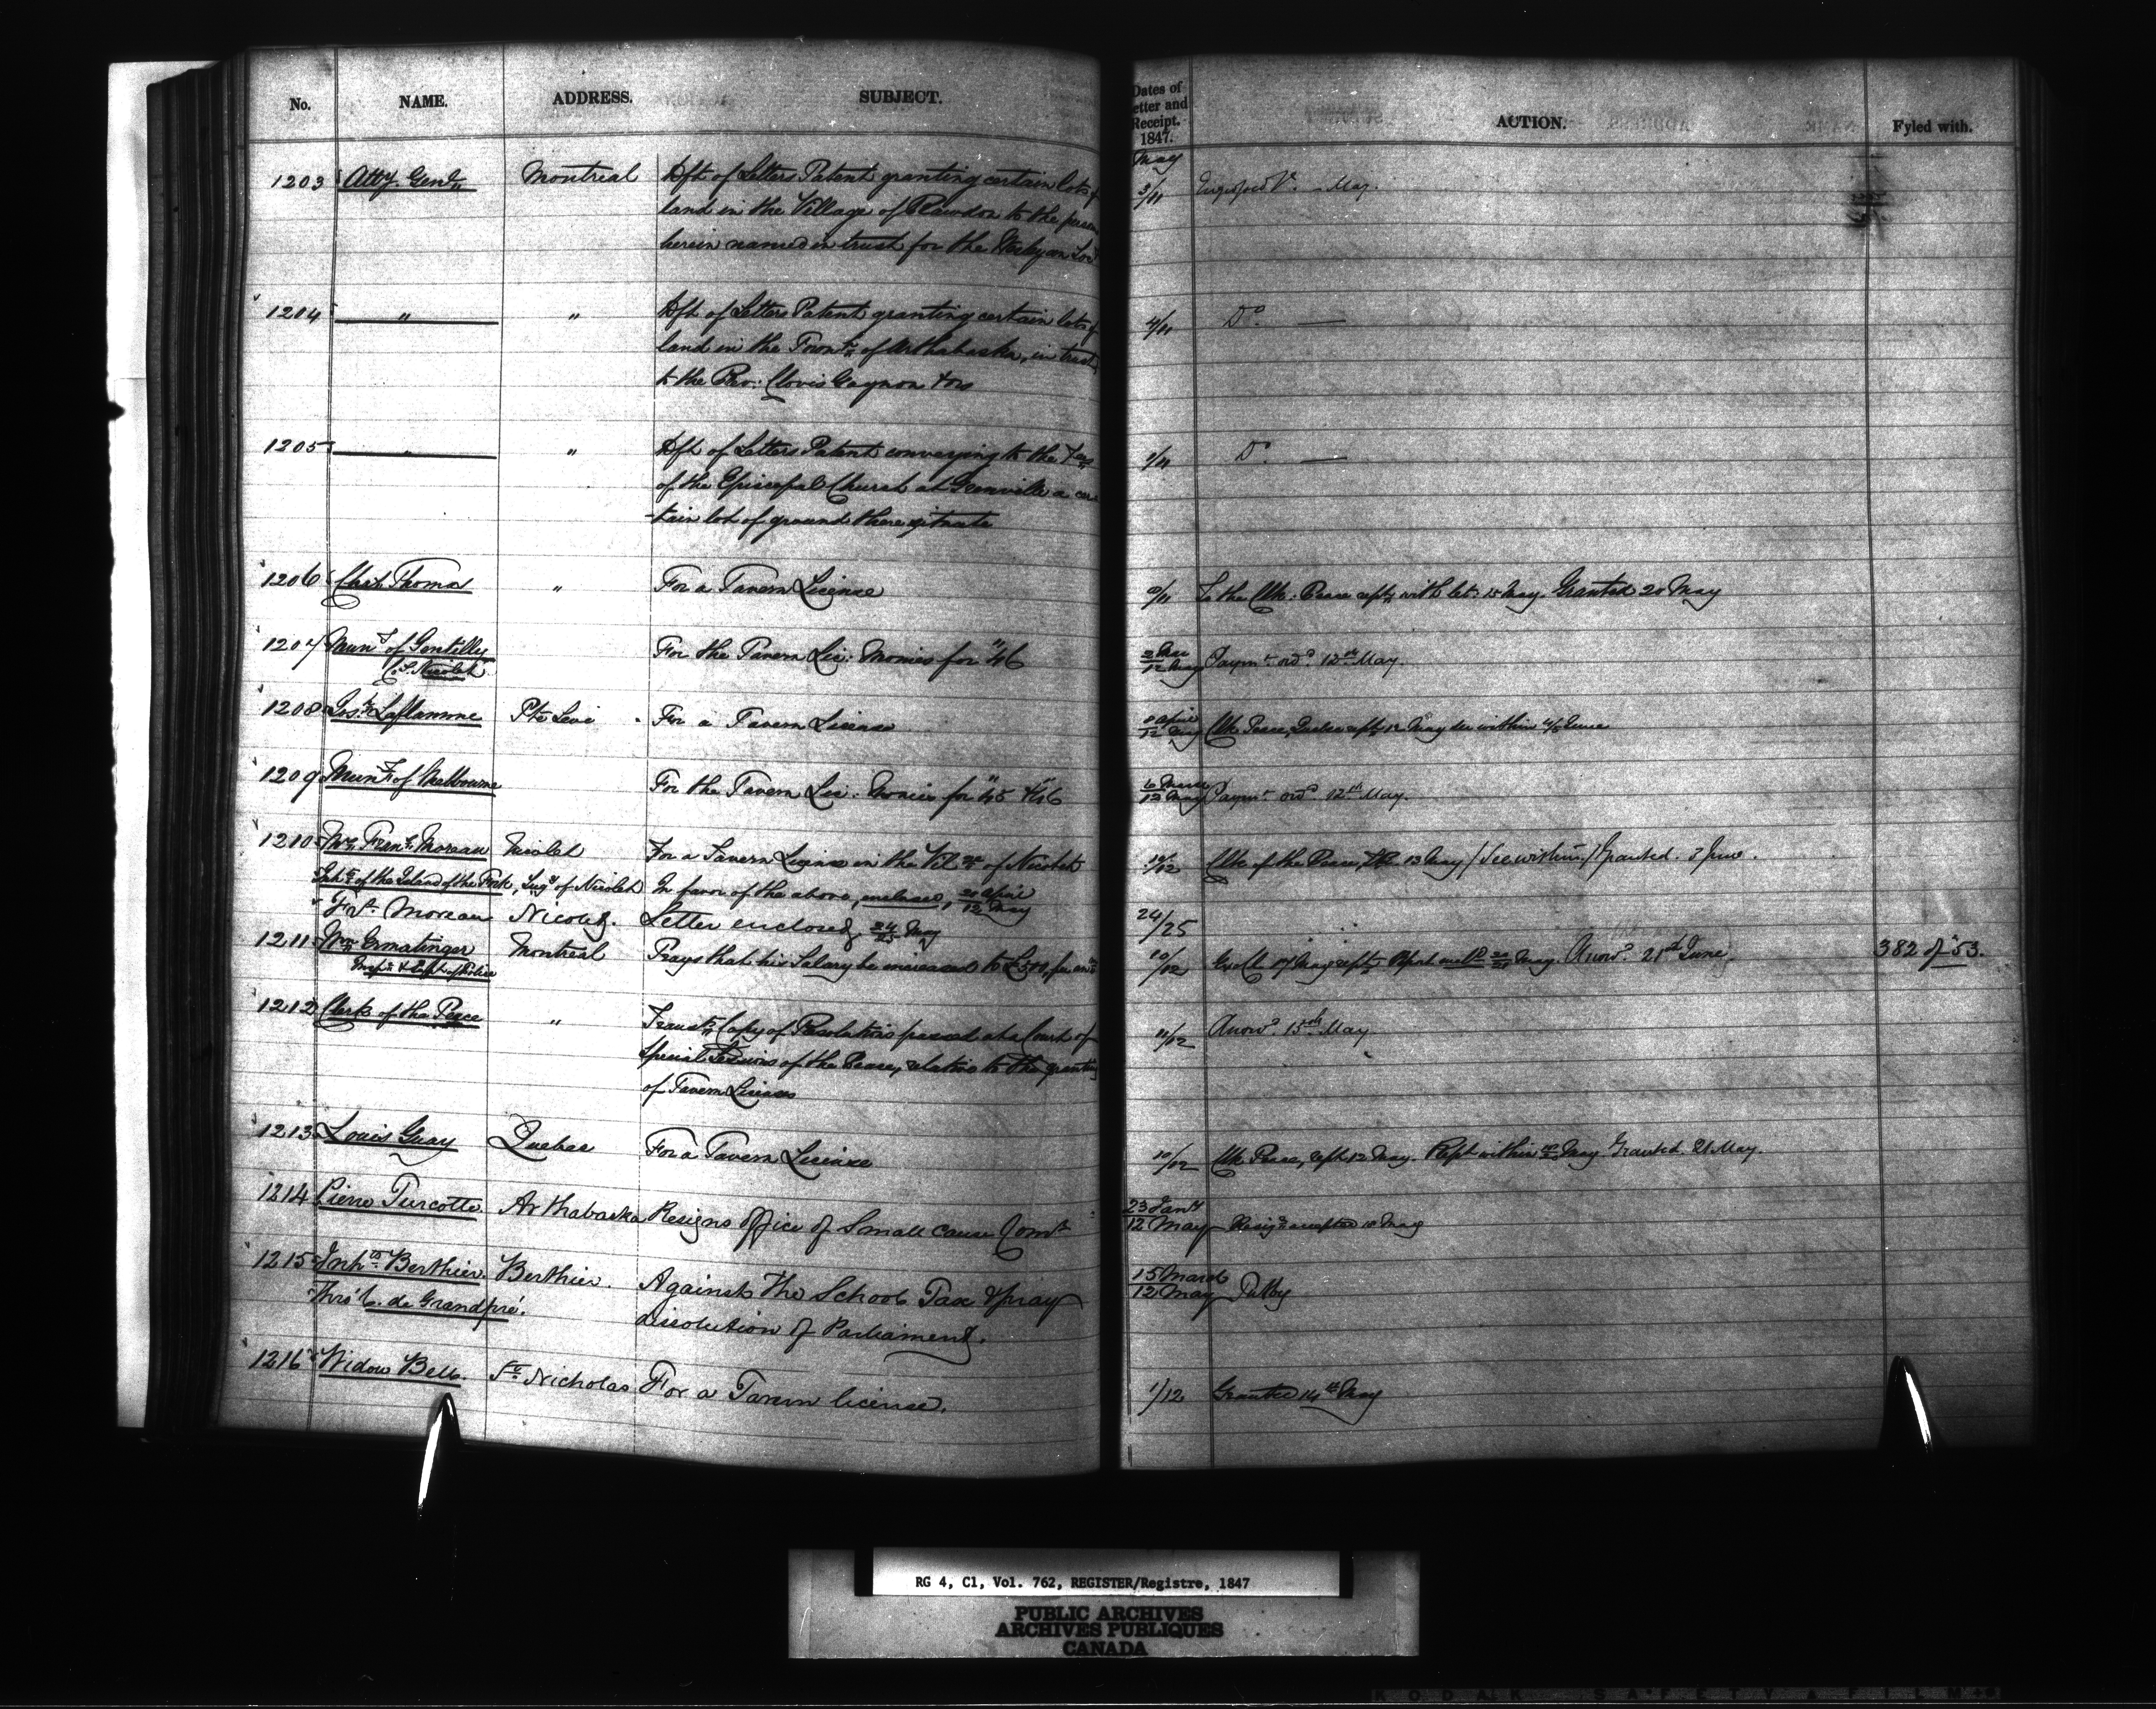 No. NAME. ADDRESS. SUBJECT.
Dates of Letter and Receipt. 1847. ACTION. Fyled with.
May
1203 Atty. Genl. Montreal Dft. of Letters Patent granting certain lots of 3/11 Engrossed - May.
land in the Village of Rawdon to the person
herein named in trust for the Wesleyan
1204 " " Dft. of Letters Patent granting certain lots of 4/11 Do.
land in the Townp. of Arthabaska, in trust
to the Rev: Clovis Gagnon & ors
1205 " " Dft. of Letters Patent conveying to the
of the Episcopal Church at Grenville a cer- /11 Do.
-tain lot of ground there situate
1206 Thomas " For a Tavern License /11 To the Clk: Peace with let: 15 May. Granted 20 May
1207 Muny. of Gentilly For the Tavern Lic: Monies for "46 12 May Paymt. ord. 12th May.
Co. Nicolet
1208 Jos. Laflamme Pte Levi For a Tavern License 8 April 12 May Clk Peace, Quebec 12 May within June
1209 Muny. of Melbourne For the Tavern Lic: Monies for "45 & "46 12 May Paymt. ord. 12th May.
1210 Frans. Moreau Nicolet For a Tavern License in the of Nicolet /12 Clk of the Peace, 13 May / See within / Granted. 3 June.
Inhts. of the Island of the Fork, Sugy. of Nicolet In favor of the above, enclosed, 20 April 12 May
" Frs. Moreau Nicolet. Letter enclosed, 24 25 May 24/25
1211 Wm Ermatinger Montreal Prays that his Salary be increased to £500, 10/12 17 May Report May. Answd. 21st June. 382 of 53.
Inspr. & Supt. of Police
1212 Clerk of the Peace " Transts. Copy of Resolutions passed at a Court of 11/12 Answd. 15th May
Special Sessions of the Peace, relative to the granting
of Tavern Licenses
1213 Louis Guay Quebec For a Tavern License 10/12 Clk Peace, 12 May. Rept within May Granted. 21 May.
1214 Pierre Turcotte Arthabaska Resigns office of Small cause Comr. 23 Jany 12 May Resign. accepted 18 May
1215 Inhts. Berthier. Berthier. Against the School Tax & pray 15 March 12 May
Thro' de Grandpré. dissolution of Parliament.
1216 Widow Bell. St. Nicholas For a Tavern license. 1/12 Granted 14th May
RG 4, C1, Vol. 762, REGISTER/Registre, 1847
PUBLIC ARCHIVES
ARCHIVES PUBLIQUES
CANADA
KODAK SAFETY FILM